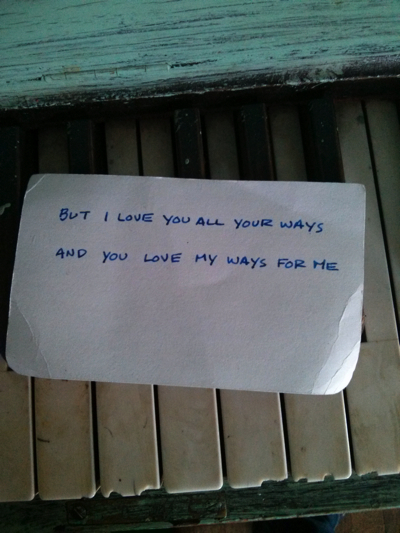 BUT I LOVE YOU ALL YOUR WAYS
AND YOU LOVE MY WAYS FOR ME